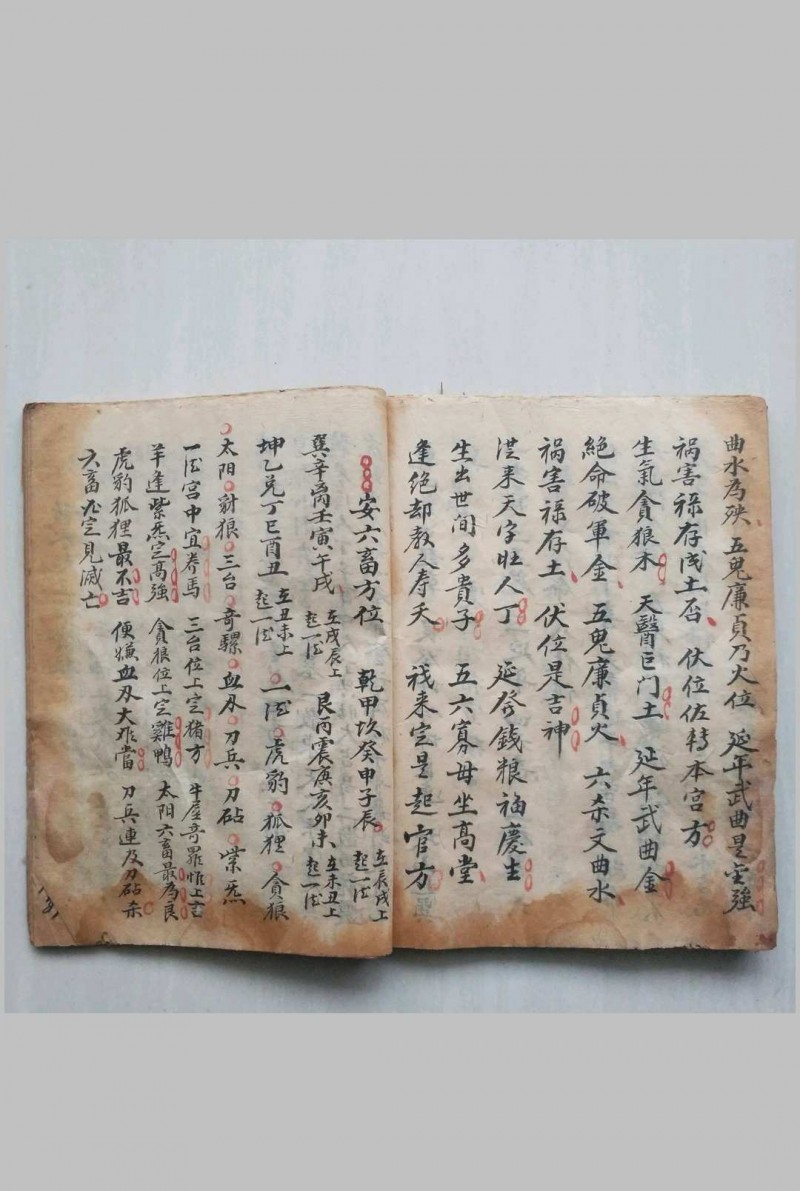 曲水為殃 五鬼廉貞乃火位 延年武曲是金強
禍害祿存戊土否 伏位佐轉本宮方
生氣貪狼木 天醫巨门土 延年武曲金
絕命破軍金 五鬼廉貞火 六杀文曲水
禍害祿存土 伏位是吉神
天字壮人丁 延 錢粮福慶生
生出世间多貴子 五六寡母坐高堂
逢絕却教人寿夭 我来定是起官方
安六畜方位 乾甲坎癸申子辰 在辰戌上起一
巽辛 壬寅午戌 在戌辰上起一 艮丙震庚亥卯未 在未丑上起一
坤乙兑丁巳酉丑 在丑未上起一 一 虎豹 狐狸 貪狼
太阳 豺狼 三台 奇騾 血刃 刀兵 刀砧 紫炁
一 宮中宜养馬 三台位上定猪方 牛屋奇羅 上吉
羊逢紫炁定高強 貪狼位上定雞鴨 太阳六畜最為良
虎豹狐狸最不吉 便嫌血刃大 當 刀兵連及刀砧杀
六畜必定見滅亡